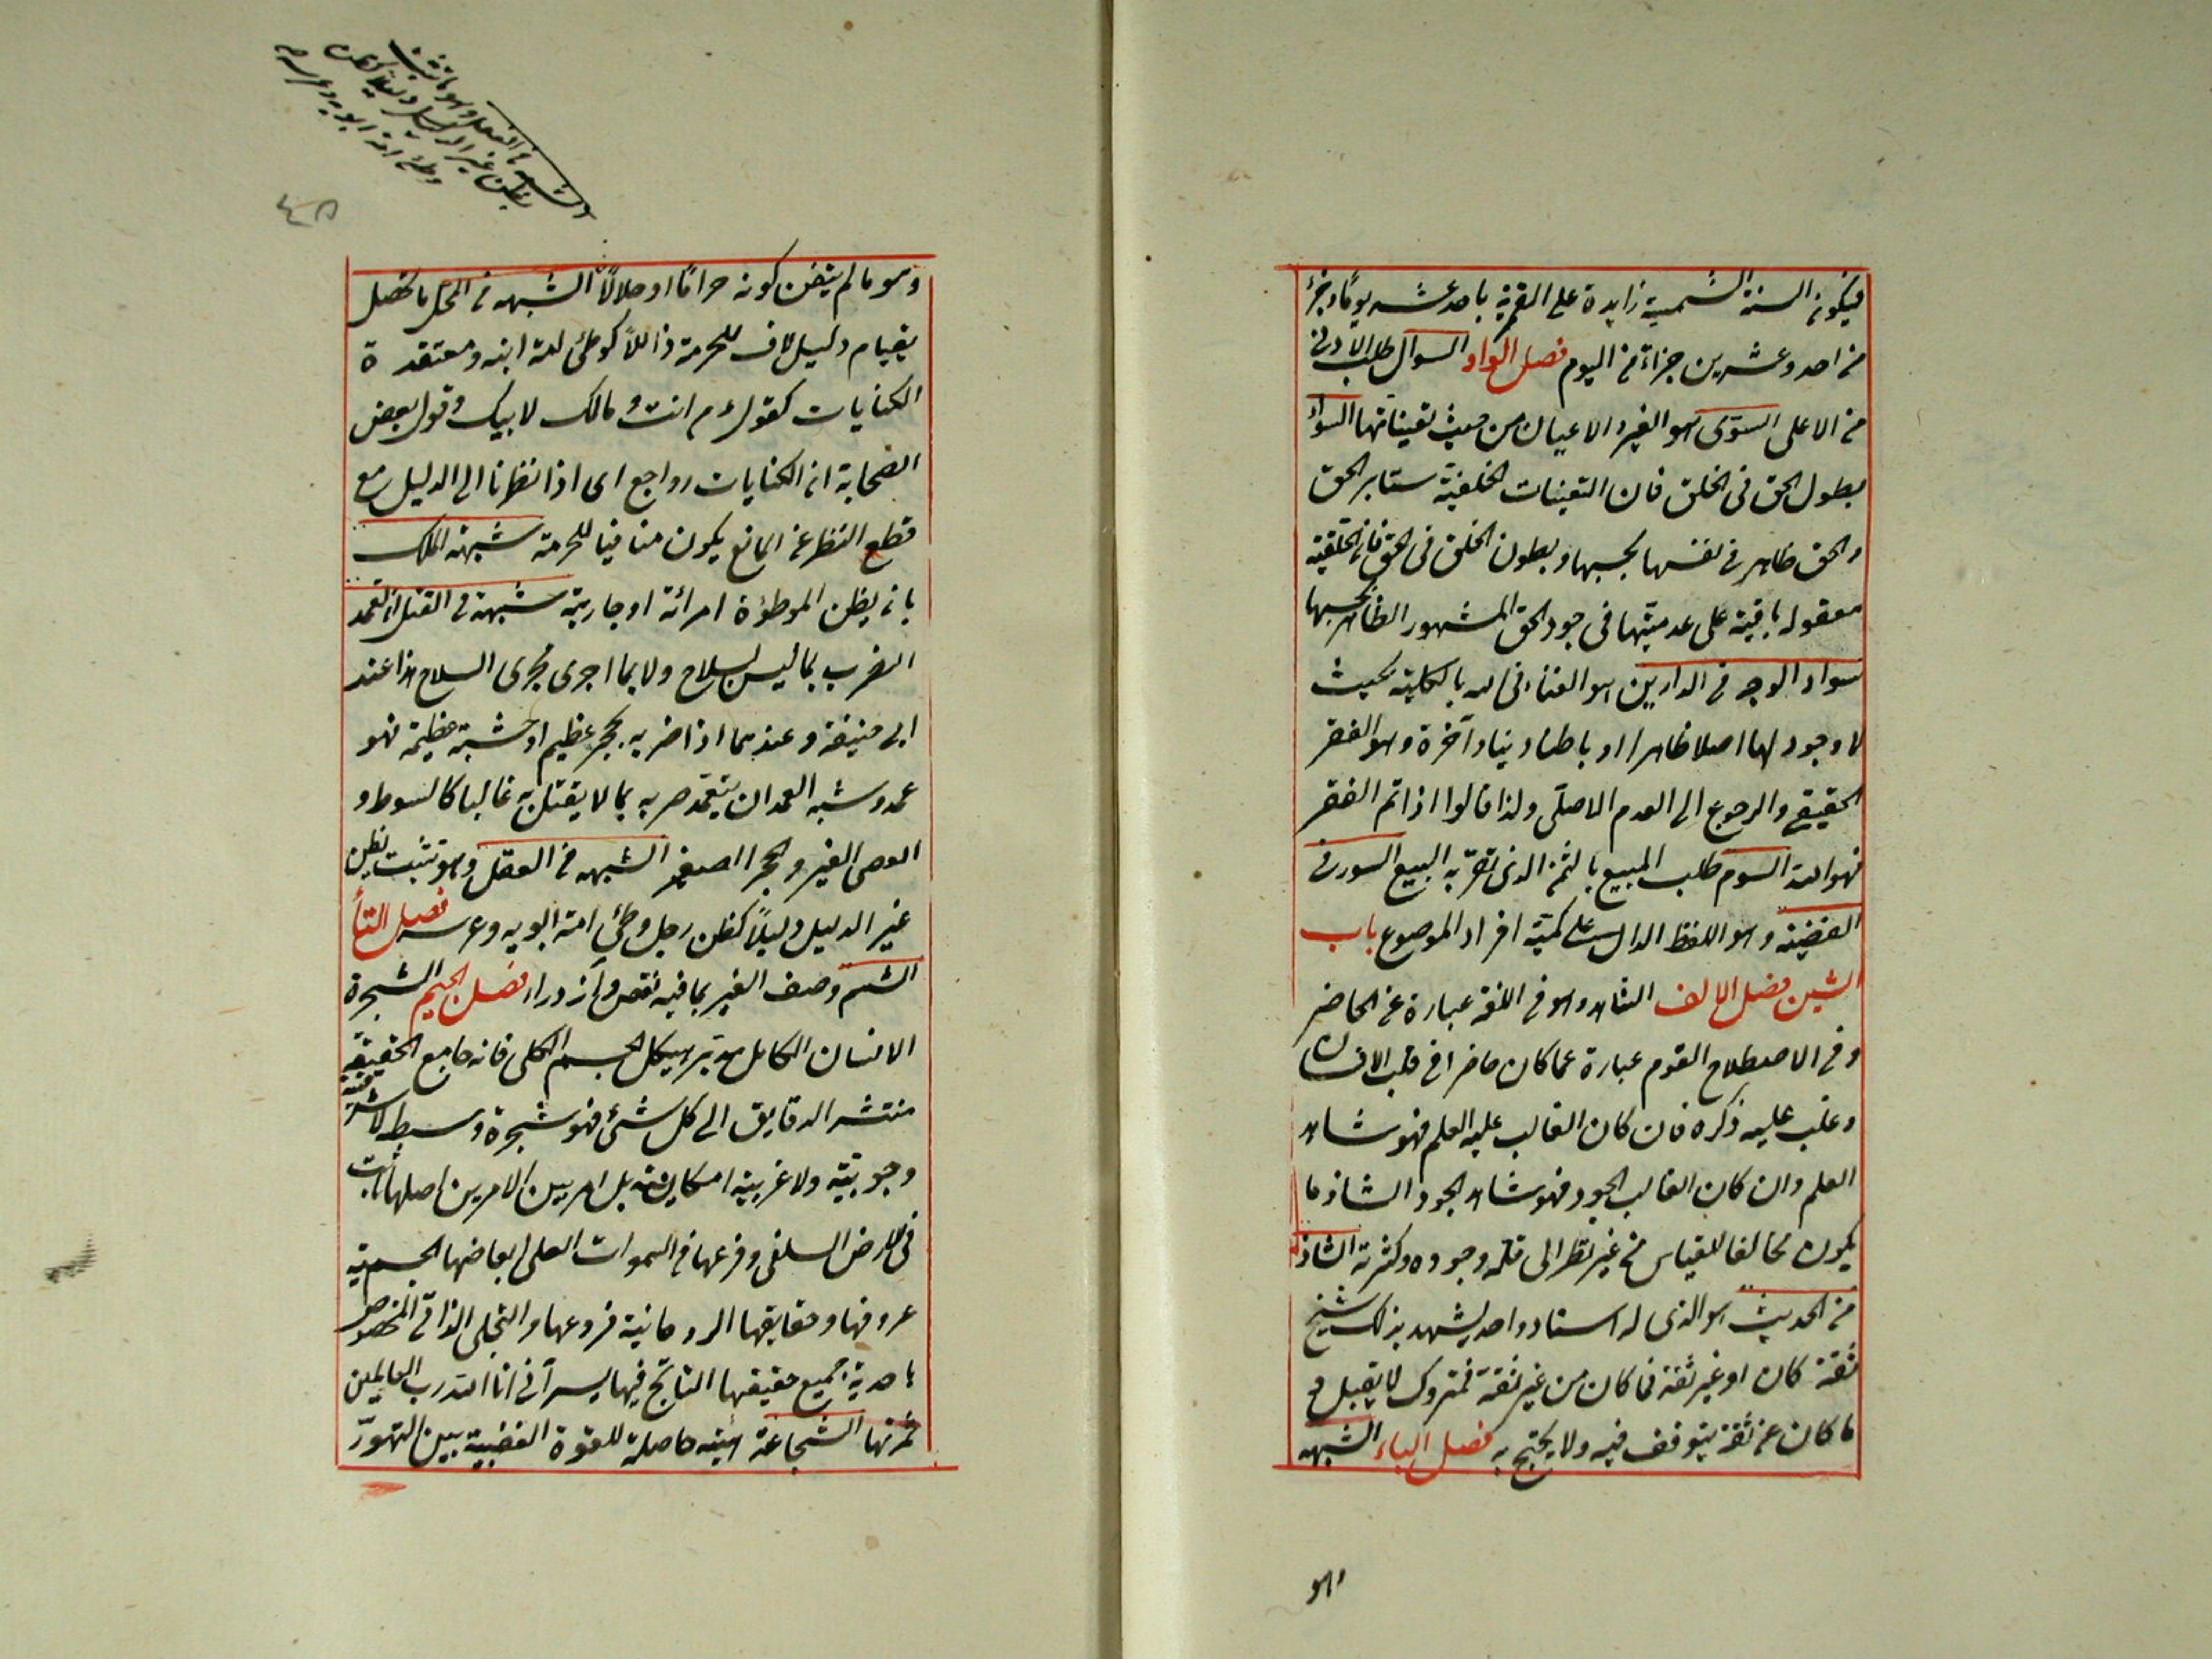 فيكون السنة الشمسية زايدة على القمرية باحد عشر يوما وجزء
من احد وعشرين جزاء من اليوم فصل الواو السوال طلب الادنى
من الاعلى السوى هو الغير والاعيان من حيث تعيناتها السواء
بطون الحق فى الخلق فان التعينات الخلقية ستاير الحق
والحق ظاهر فى نفسها بحسبها وبطون الخلق فى الحق فان الخلقية
معقوله باقية على عدميتها فى وجود الحق المشهور الظاهر بحسبها
سواد الوجه فى الدارين هو الفناء فى الله بالكلية بحيث
لا وجود لها اصلا ظاهرا او باطنا دنيا وآخرة وهو الفقر
الحقيقى والرجوع الى العدم الاصلى ولذا قالوا اذا تم الفقر
فهو الله السوم طلب المبيع بالثمن الذى تقرر به البيع السور فى
القضية وهو اللفظ الدال على كمية افراد الموضوع باب
الشين فصل الالف الشاهد وهو فى اللغة عبارة عن الحاضر
وفى الاصطلاح القوم عبارة عما كان حاضرا فى قلب الانسان
وغلب عليه ذكره فان كان الغالب عليه العلم فهو شاهد
العلم وان كان الغالب الوجود فهو شاهد الوجود الشاذ ما
يكون مخالفا للقياس من غير نظر الى قلة وجوده وكثرته الشاذ
من الحديث هو الذى له اسناد واحد يشهد بذلك شيخ
ثقة كان او غير ثقة فما كان من غير ثقة فمتروك لا يقبل و
ما كان عن ثقة يتوقف فيه ولا يحتج به فصل الباء الشبهه
وهو
وهو ما لم يتيقن كونه حراما او حلالا الشبهه فى المحل ما تحصل
بقيام دليل ناف للحرمة ذاتا كوطئ امة ابنه ومعتقدة
الكنايات كقوله ع م انت ومالك لابيك وقول بعض
الصحابة ان الكنايات رواجع اى اذا نظرنا الى الدليل مع
قطع النظر عن المانع يكون منافيا للحرمة شبهة الملك
بان يظن الموطؤة امرائة او جاريته شبهة فى القتل ان يتعمد
الضرب بما ليس بسلاح ولا بما اجرى مجرى السلاح هذا عند
ابى حنيفة وعندهما اذا ضربه بحجر عظيم او خشبة عظيمة فهو
عمد وشبه العمد ان يتعمد ضربه بما لا يقتل به غالبا كالسوط و
العصى الصغير والحجر الصغير الشبهه فى الفعل وهو تثبت بظن
غير الدليل دليلا كظن رجل وطئ امة ابويه وعرسه فصل التاء
الشتم وصف الغير بما فيه نقص وازدراء فصل الجيم الشجرة
الانسان الكامل مدبر هيكل الجسم الكلى فانه جامع الحقيقة
منتشر الدقايق الى كل شئ فهو شجرة وسط لا شرقية
وجوبية ولا غربية امكانية بل امر بين الامرين اصلها ثابت
فى الارض السفلى وفرعها فى السموات العلى ابعاضها الجسمية
عروقها وحقايقها الروحانية فروعها والتجلى الذاتى المخصوص
باحدية جميع حقيقتها الناتج فيها بسر انى انا الله رب العالمين
ثمرتها الشجاعة هيئة حاصلة للقوة الغضبية بين التهور
الشبهه فى الفعل وهو ما تثبت
بظن غير الدليل دليلا كظن
وطئ امة ابويه وعرسه